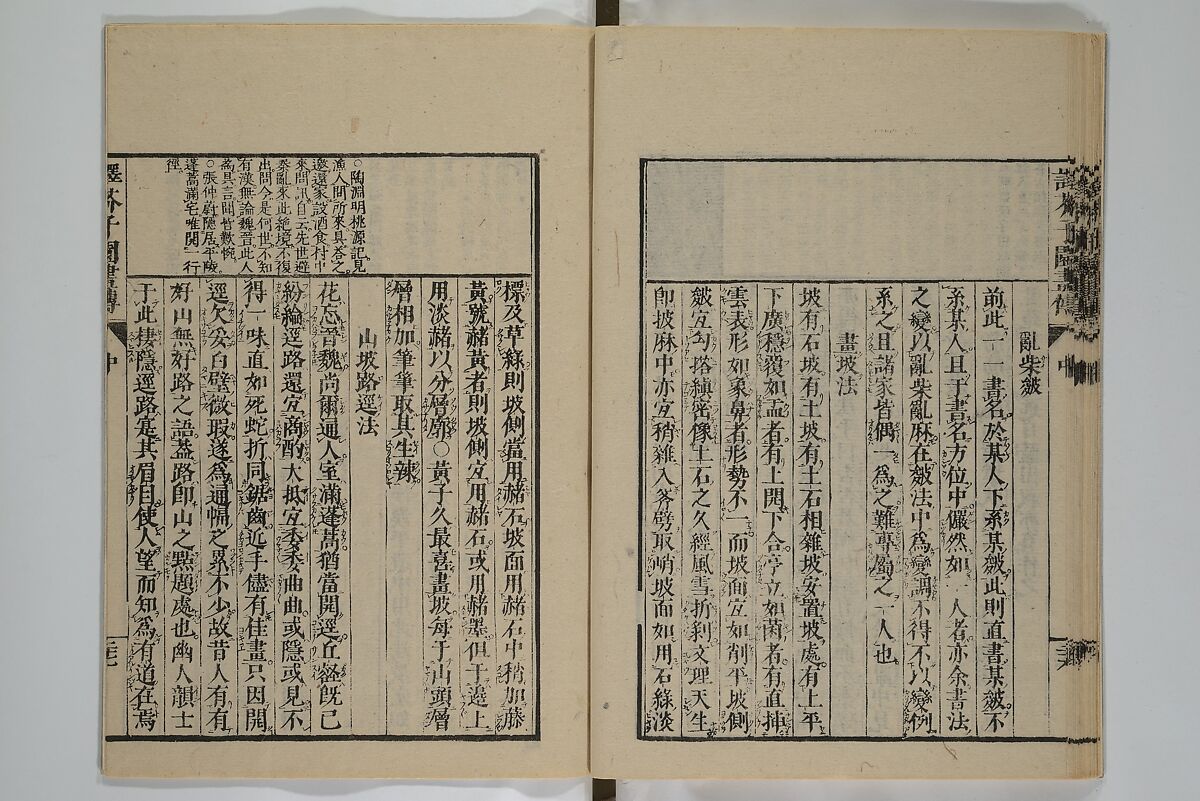 亂柴皴
前此一一書名於某人下系某皴此則直書某皴不
系某人且于書名方位中儼然如一人者亦余書法
之變以亂柴亂麻在皴法中為變調不得不以變例
系之且諸家皆偶一為之難專屬之一人也
畫坡法
坡有石坡有土坡有土石相雜坡安置坡處有上平
下廣穩覆如盂者有上閃下合亭立如菌者有直揷
雲表形如象鼻者形勢不一而坡面宜如削平坡側
皴宜勾搭縝密像土石之久經風雪折剝文理天生
即披麻中亦宜稍雜入斧劈取峭坡面如用石綠淡
譯芥子園畫傳
中
標及草綠則坡側當用赭石坡面用赭石中稍加藤
黃號赭黃者則坡側宜用赭石或用赭墨但于邊上
用淡赭以分層廓○黃子久最喜畫坡每于山頭層
層相加筆筆取其生辣
山坡路逕法
花忘晉魏尚爾通人室滿蓬蒿猶當開逕丘壑既已
紛綸逕路還宜商酌大抵宜委委曲曲或隱或見不
得一味直如死蛇折同鋸齒近手儘有佳畫只因開
逕欠妥白璧微瑕遂為通幅之累不少故昔人有有
好山無好路之語蓋路即山之點題處也幽人韻士
于此棲隱逕路寔其眉目使人望而知為有道在焉
○陶淵明桃源記見
漁人問所來具荅之
邀還家設酒食村中
來問訊自云先世避
秦亂來此絕境不復
出問今是何世不知
有漢無論魏晉此人
為具言聞皆歎惋
○張仲蔚隱居平陵
蓬蒿滿宅唯開一行
徑
譯芥子園畫傳
中